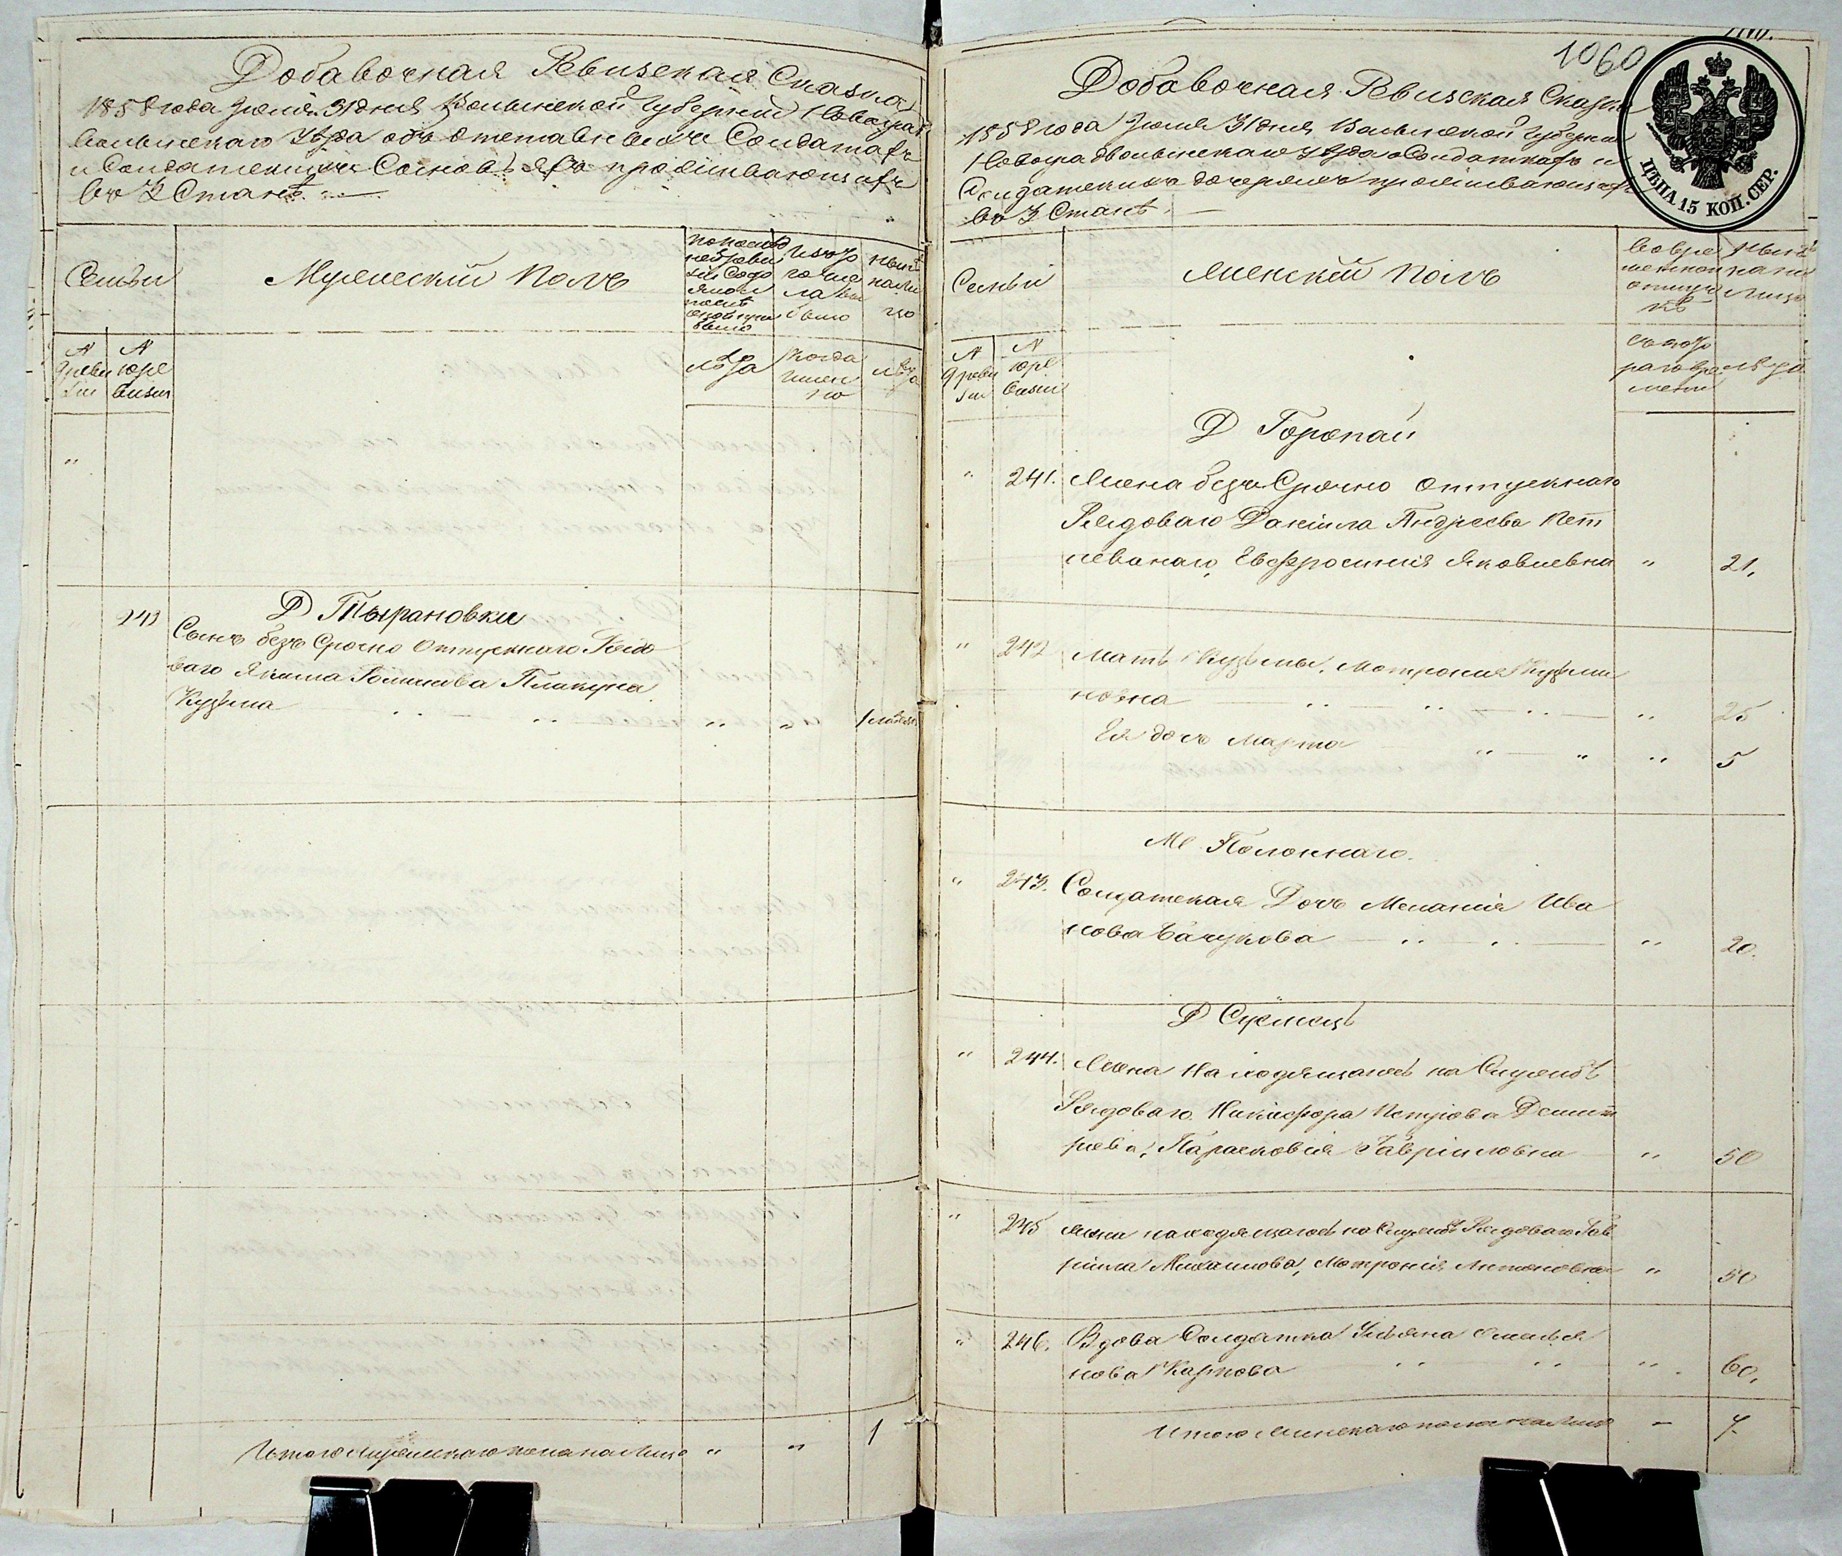 Добавочная Ревизская Сказка
1858 года Июля 31 дня Волынской Губернии Новоград
волынского Уезда объ отставныхъ Солдатахъ
и Солдатскихъ Сыновьяхъ проживающихъ
въ 3 Станѣ
Семьи
Мужеский Полъ
N
N
лѣта
когда
имен
но
лѣта
Д Тырановки
242
Сынъ безъ Срочно Отпускнаго Рядо
ваго Якима Романова Плакуна
Кузьма
" " 1
Итого мужескаго пола на лицо " " 1
1060
ЦѢНА 15 КОП. СЕР.
Добавочная Ревизская Сказка
1858 года Июля 31 дня Волынской Губернии
Новоградволынскаго Уезда о Солдаткахъ и
Солдатскихъ дочеряхъ проживающихъ
въ 3 Станѣ
Семьи
Женский Полъ
N
N
Д Горопай
" 241. Жена безъ Срочно отпускнаго
Рядоваго Данiила Андреева Кот
леванаго, Евфросинiя Яковлевна " 21,
" 242 Мать Кузьмы, Мотрона Кузьми
новна " 25
Ея дочь Марта " 5
М. Полоннаго.
" 243. Солдатская Дочь Меланiя Ива
нова Бачукова " 20.
Д Суемецъ
" 244. Жена Находящагось на Службѣ
Рядоваго Никифора Петрова Демит
рiева, Парасковiя Гаврiиловна " 50
" 245 Жена находящагось на Службѣ Рядоваго Гав
рiила Михаилова, Мотронiя Антоновна " 50
" 246. Вдова Солдатка Ульяна Емелья
нова Карпова " 60,
Итого женскаго пола на лицо — 7.